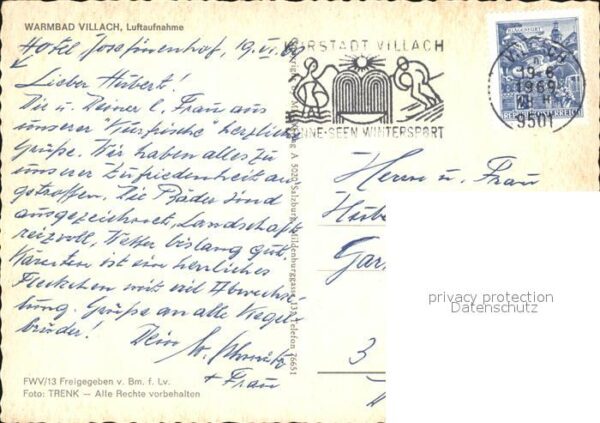 WARMBAD VILLACH, Luftaufnahme
Hotel Josefinenhof, 19. VI. 69
Lieber Hubert!
Dir u. Deiner l. Frau aus
unserer "Kurfrische" herzliche
Grüße. Wir haben alles zu
unserer Zufriedenheit an-
getroffen. Die Bäder sind
ausgezeichnet, Landschaft
reizvoll, Wetter bislang gut.
Kärnten ist ein herrliches
Fleckchen mit viel Abwechs-
lung. Grüße an alle Kegel-
brüder!
Dein
+ Frau
FWV/13 Freigegeben v. Bm. f. Lv.
Foto: TRENK — Alle Rechte vorbehalten
A 5020 Salzburg, Telefon 76651
VILLACH
SEEN WINTERSPORT
VILLACH
19-6
1969
9501
REPUBLIK ÖSTERREICH
Herrn u. Frau
Hube
Gar
3
privacy protection
Datenschutz